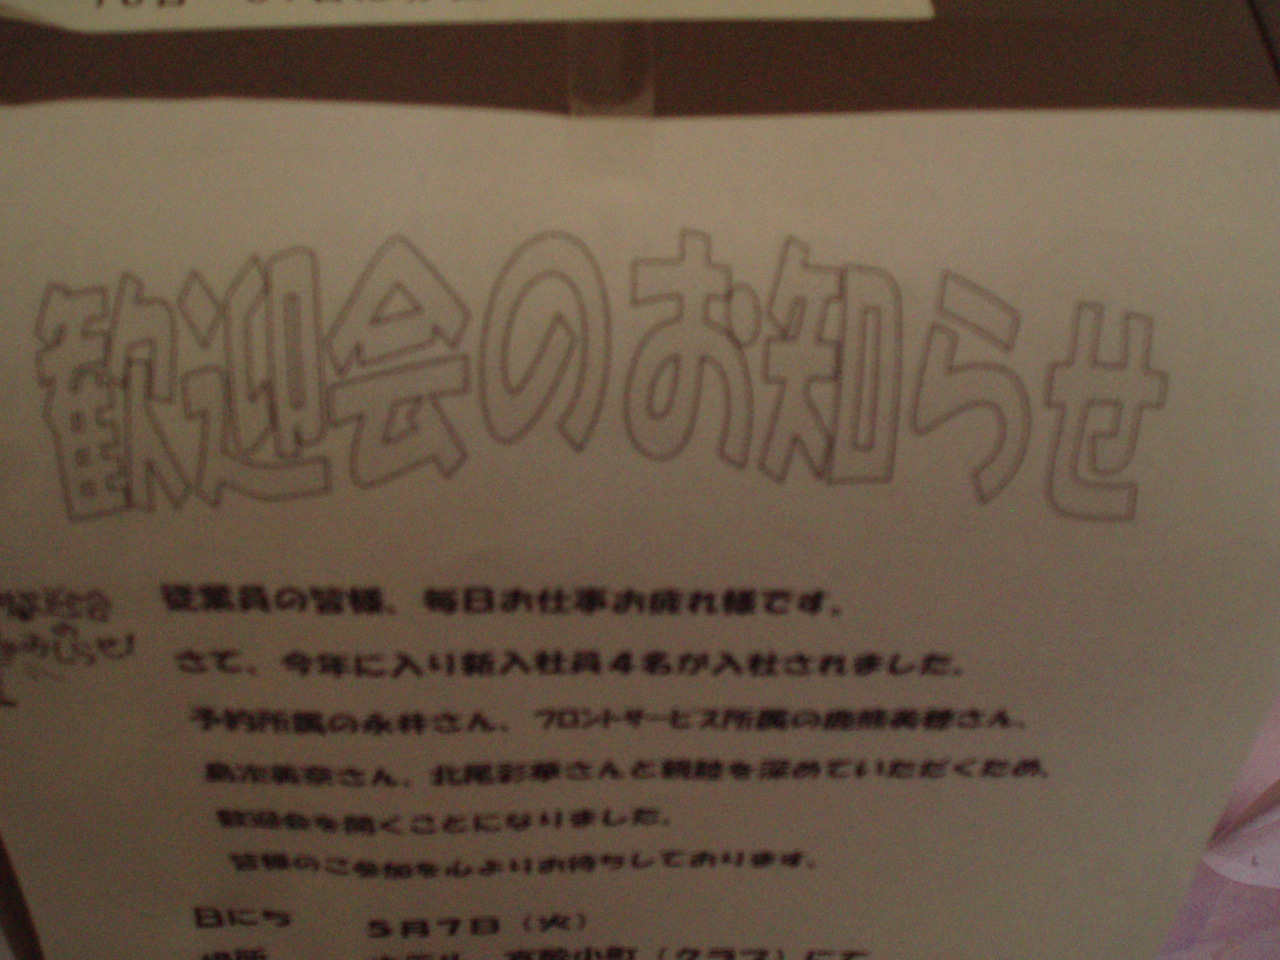 歓迎会のお知らせ
従業員の皆様、毎日お仕事お疲れ様です。
さて、今年に入り新入社員4名が入社されました。
予約所属の永井さん、フロントサービス所属の鹿熊美穂さん、
島次美奈さん、北尾彩華さんと親睦を深めていただくため、
歓迎会を開くことになりました。
皆様のご参加を心よりお待ちしております。
日にち 5月7日(火)
場所